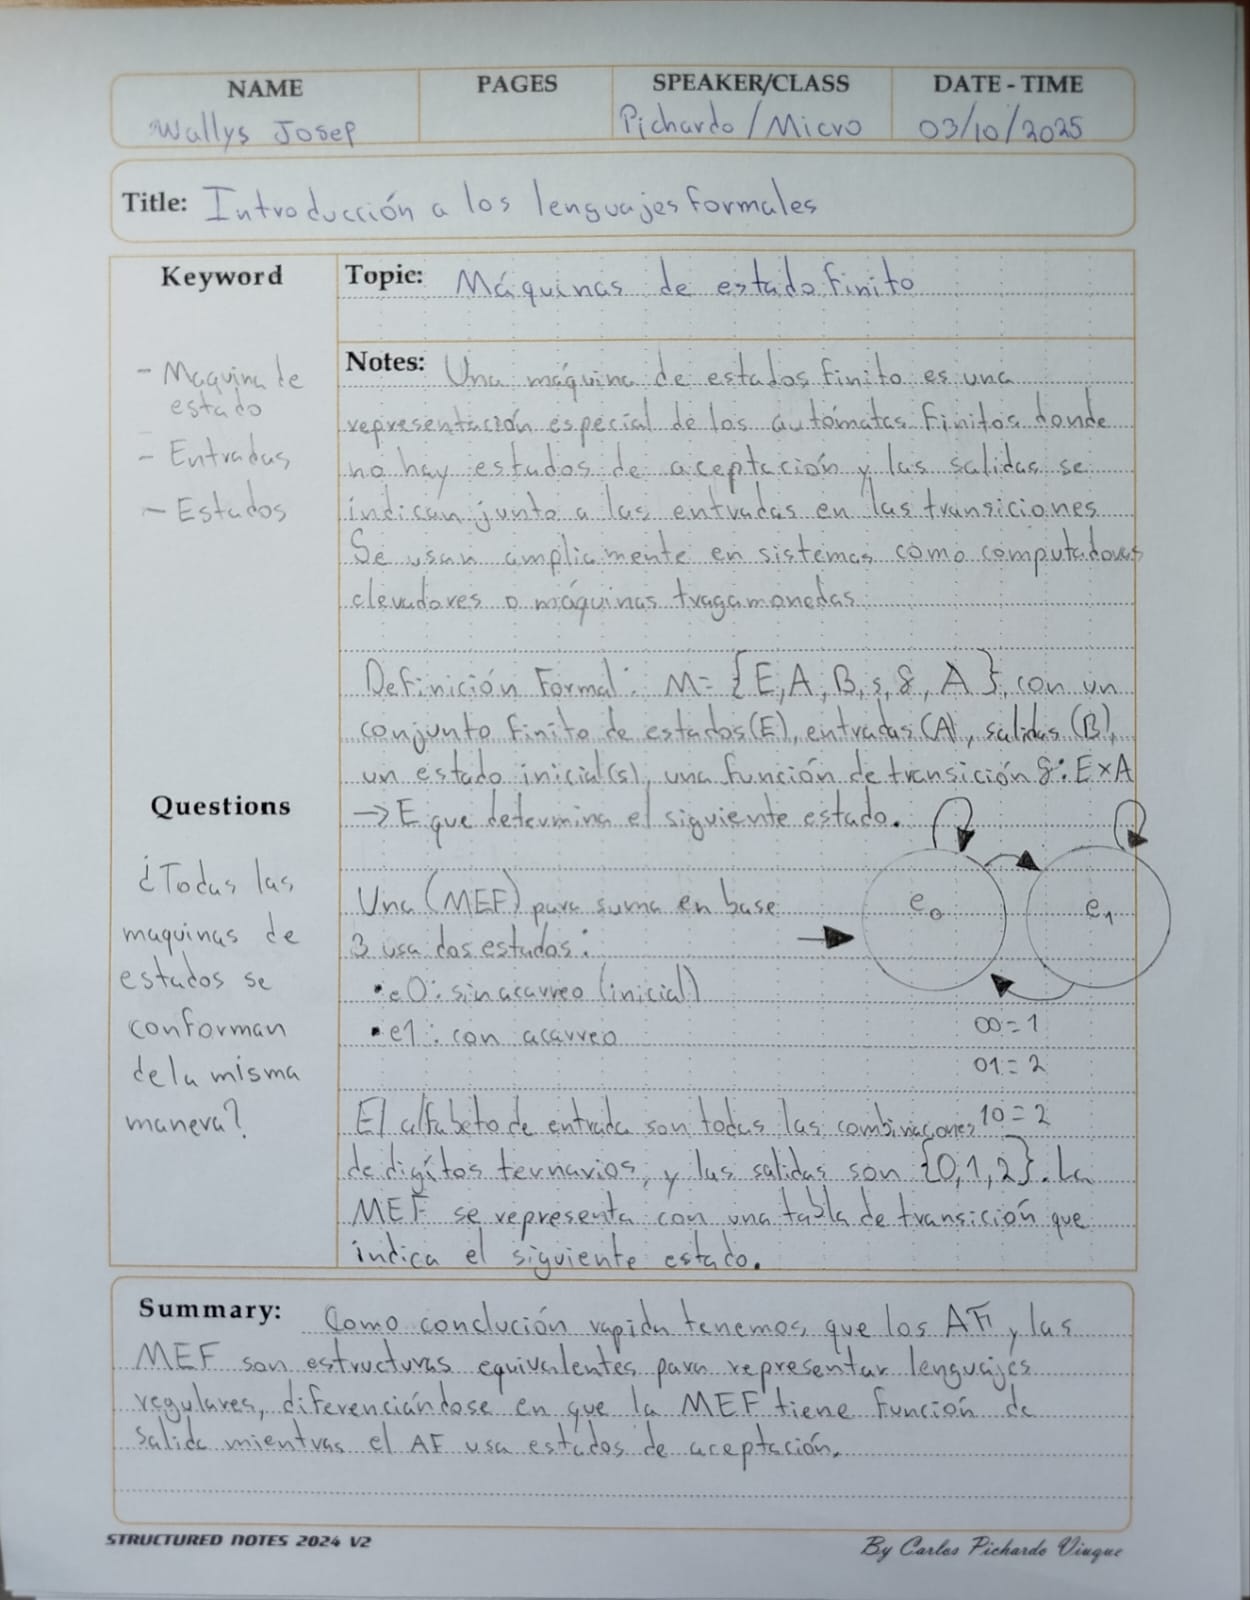 NAME PAGES SPEAKER/CLASS DATE - TIME
Wallys Josep Pichardo / Micro 03/10/2025
Title: Introducción a los lenguajes formales
Keyword
- Maquina de
estado
- Entradas
- Estados
Questions
¿Todas las
maquinas de
estados se
conforman
de la misma
manera?
Topic: Máquinas de estado finito
Notes: Una máquina de estados finito es una
representación especial de los autómatas finitos donde
no hay estados de aceptación y las salidas se
indican junto a las entradas en las transiciones
Se usan ampliamente en sistemas como computadoras
elevadores o máquinas tragamonedas.
Definición Formal: M= {E, A, B, s, δ, A}, con un
conjunto finito de estados (E), entradas (A), salidas (B),
un estado inicial (s), una función de transición δ: E x A
→ E que determina el siguiente estado.
Una (MEF) para suma en base
3 usa dos estados:
• e0: sin acarreo (inicial)
• e1: con acarreo
e0 e1
00 = 1
01 = 2
10 = 2
El alfabeto de entrada son todas las combinaciones
de digitos ternarios, y las salidas son {0,1,2}. La
MEF se representa con una tabla de transición que
indica el siguiente estado.
Summary: Como conclución rapida tenemos que los AF y las
MEF son estructuras equivalentes para representar lenguajes
regulares, diferenciándose en que la MEF tiene función de
salida mientras el AF usa estados de aceptación.
STRUCTURED NOTES 2024 V2
By Carlos Pichardo Viuque